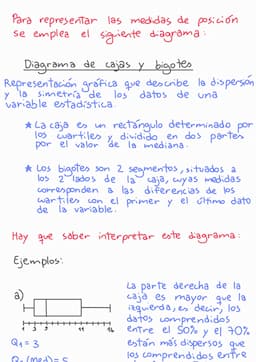 Para representar las medidas de posición
se emplea el siguiente diagrama:
Diagrama de cajas y bigotes
Representación gráfica que describe la dispersón
y la simetría de los datos de una
variable estadística.
* La caja es un rectángulo determinado por
los cuartiles y dividido en dos partes
por el valor de la mediana.
* Los bigotes son 2 segmentos, situados a
los 2 lados de la caja, cuyas medidas
corresponden a las diferencias de los
cuartiles con el primer y el último dato
de la variable.
Hay que saber interpretar este diagrama:
Ejemplos:
a)
1 3 5 11 16
Q1 = 3
Q2 (Med) = 5
La parte derecha de la
caja es mayor que la
izquierda, es decir, los
datos comprendidos
entre el 50% y el 70%
están más dispersos que
los comprendidos entre